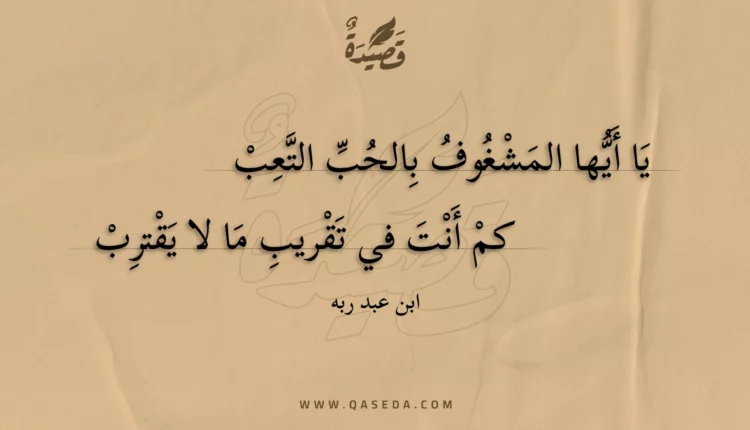 قَصِيْدَةٌ
يَا أَيُّها المَشْغُوفُ بِالحُبِّ التَّعِبْ
كمْ أَنْتَ في تَقْريبِ مَا لا يَقْترِبْ
ابن عبد ربه
WWW.QASEDA.COM